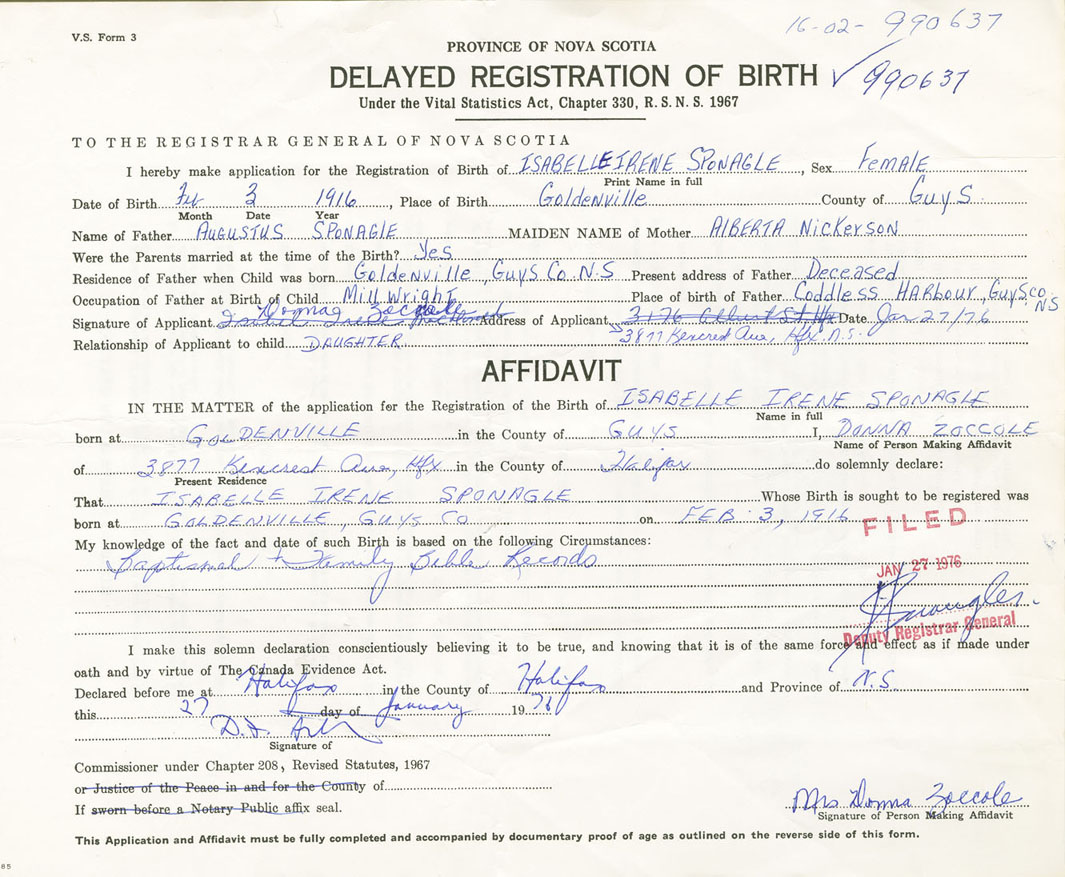 16-02-990637
V.S. Form 3
PROVINCE OF NOVA SCOTIA
DELAYED REGISTRATION OF BIRTH ✓ 990637
Under the Vital Statistics Act, Chapter 330, R.S.N.S. 1967
TO THE REGISTRAR GENERAL OF NOVA SCOTIA
I hereby make application for the Registration of Birth of ISABELLE IRENE SPONAGLE, Sex Female
Print Name in full
Date of Birth Feb 3 1916, Place of Birth Goldenville County of Guys
Month Date Year
Name of Father AUGUSTUS SPONAGLE MAIDEN NAME of Mother ALBERTA NICKERSON
Were the Parents married at the time of the Birth? Yes
Residence of Father when Child was born Goldenville, Guys Co. N.S Present address of Father Deceased
Occupation of Father at Birth of Child Mill Wright Place of birth of Father Coddless HARBOUR, Guys co. NS
Signature of Applicant Donna Zoccole Address of Applicant 3176 Albert St Hfx Date Jan 27/76
3877 Kencrest Ave, Hfx. N.S.
Relationship of Applicant to child DAUGHTER
AFFIDAVIT
IN THE MATTER of the application for the Registration of the Birth of ISABELLE IRENE SPONAGLE
Name in full
born at GOLDENVILLE in the County of GUYS I, DONNA ZOCCOLE
Name of Person Making Affidavit
of 3877 Kencrest Ave, Hfx in the County of Halifax do solemnly declare:
Present Residence
That ISABELLE IRENE SPONAGLE Whose Birth is sought to be registered was
born at GOLDENVILLE, GUYS CO on FEB. 3, 1916
FILED
My knowledge of the fact and date of such Birth is based on the following Circumstances:
Baptismal + Family Bible Records
JAN 27 1976
Deputy Registrar General
I make this solemn declaration conscientiously believing it to be true, and knowing that it is of the same force and effect as if made under
oath and by virtue of The Canada Evidence Act.
Declared before me at Halifax in the County of Halifax and Province of N.S.
this 27 day of January 1976
Signature of
Commissioner under Chapter 208, Revised Statutes, 1967
or Justice of the Peace in and for the County of
If sworn before a Notary Public affix seal.
Mrs Donna Zoccole
Signature of Person Making Affidavit
This Application and Affidavit must be fully completed and accompanied by documentary proof of age as outlined on the reverse side of this form.
85